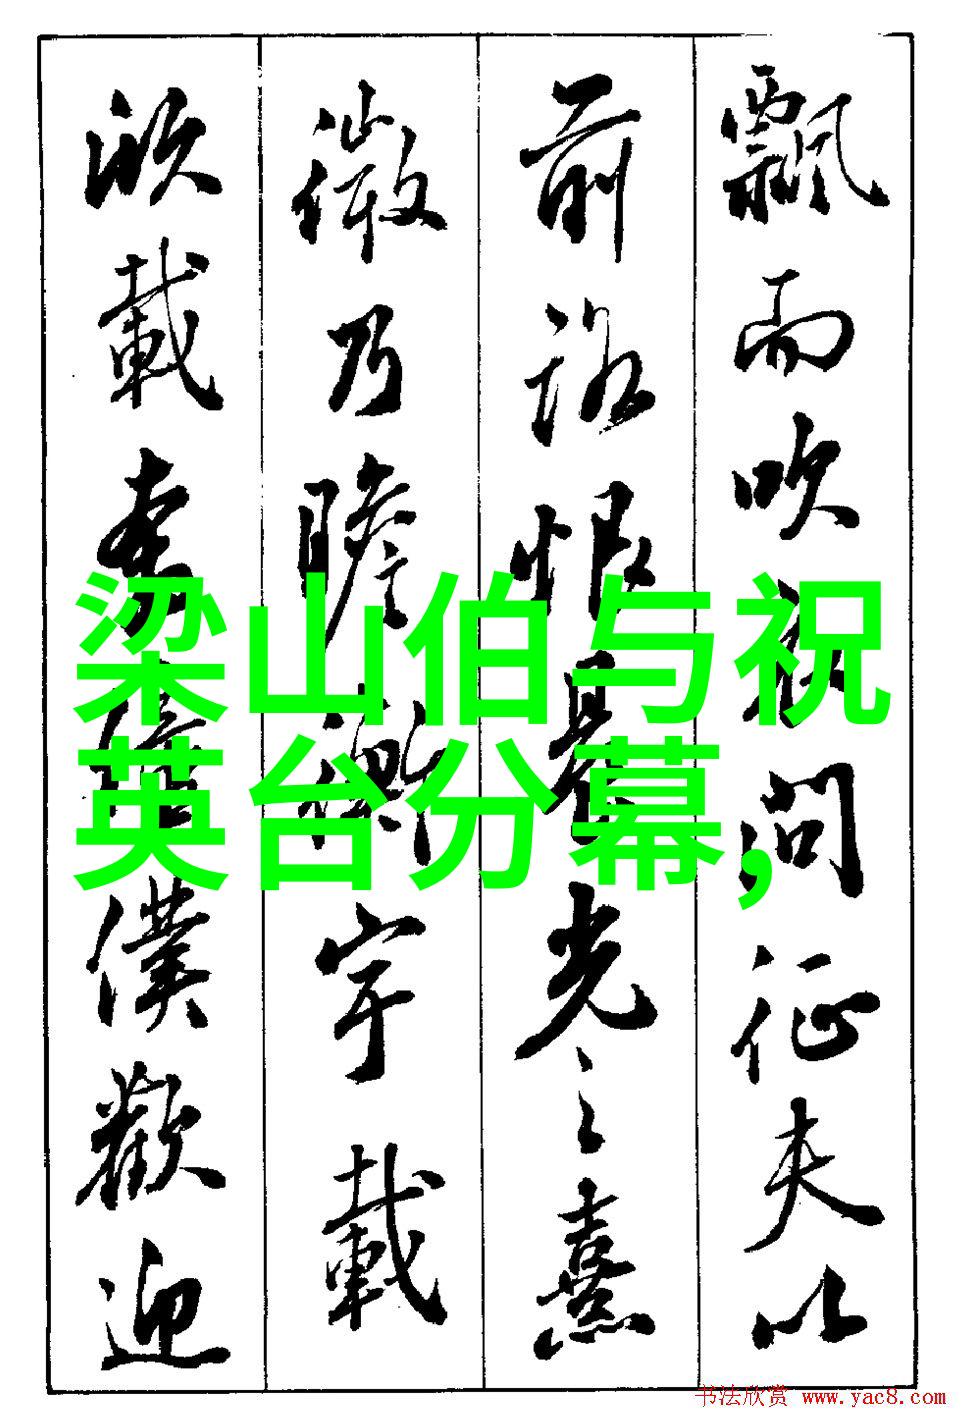 飄而吹衣問征夫以
前路恨晨光之熹
微乃瞻衡宇載
欣載奔僮僕歡迎
梁山伯与祝
英台分幕,
书法欣赏 www.yac8.com